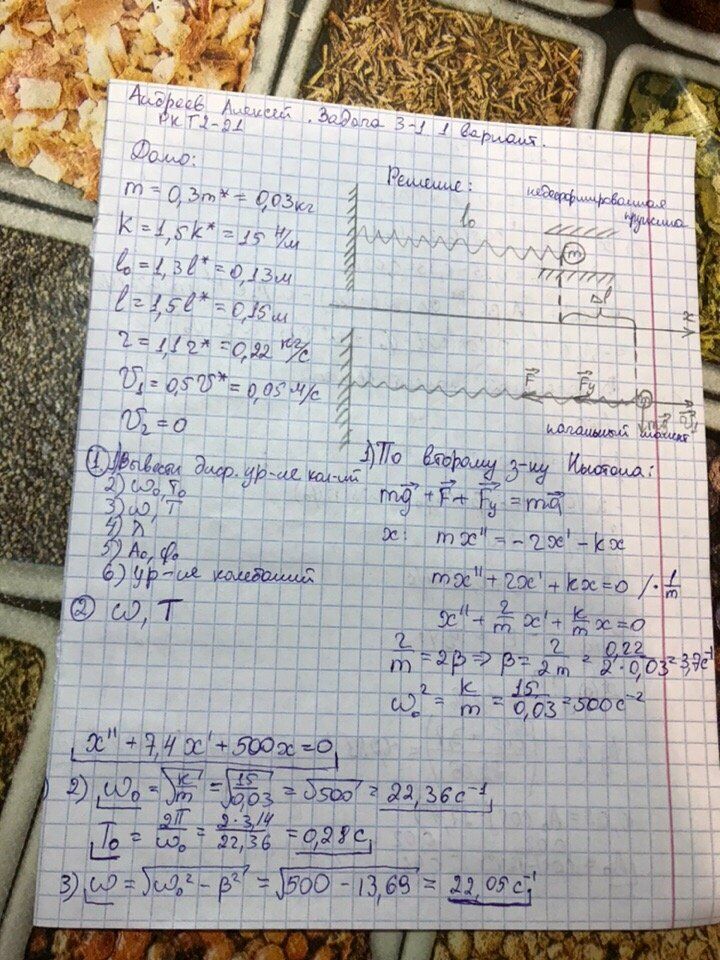 Андреев Алексей. Задача 3-1 1 вариант.
РКТ2-21
Дано:
m = 0,3m* = 0,03 кг
K = 1,5k* = 15 Н/м
l₀ = 1,3l* = 0,13 м
l = 1,5l* = 0,15 м
r = 1,1r* = 0,22 кг/с
V₁ = 0,5V* = 0,05 м/с
V₂ = 0
Решение:
недеформированная
пружина
l₀
m
Δl
x
F
Fу
начальный момент
① 1) Вывести диф. ур-ие кол-ий
2) ω₀, T₀
3) ω, T
4) λ
5) A₀, φ₀
6) ур-ие колебаний
② ω, T
1) По второму з-ку Ньютона:
mg + F + Fу = ma
x: mx'' = -rx' - kx
mx'' + rx' + kx = 0 / · 1/m
x'' + r/m x' + k/m x = 0
r/m = 2β => β = r/2m = 0,22/2·0,03 = 3,7 с⁻¹
ω₀² = k/m = 15/0,03 = 500 с⁻²
x'' + 7,4x' + 500x = 0
2) ω₀ = √k/m = √15/0,03 = √500 = 22,36 с⁻¹
T₀ = 2π/ω₀ = 2·3,14/22,36 = 0,28 с
3) ω = √ω₀² - β² = √500 - 13,69 = 22,05 с⁻¹